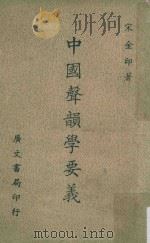 宋金印著
中國聲韻學要義
廣文書局印行